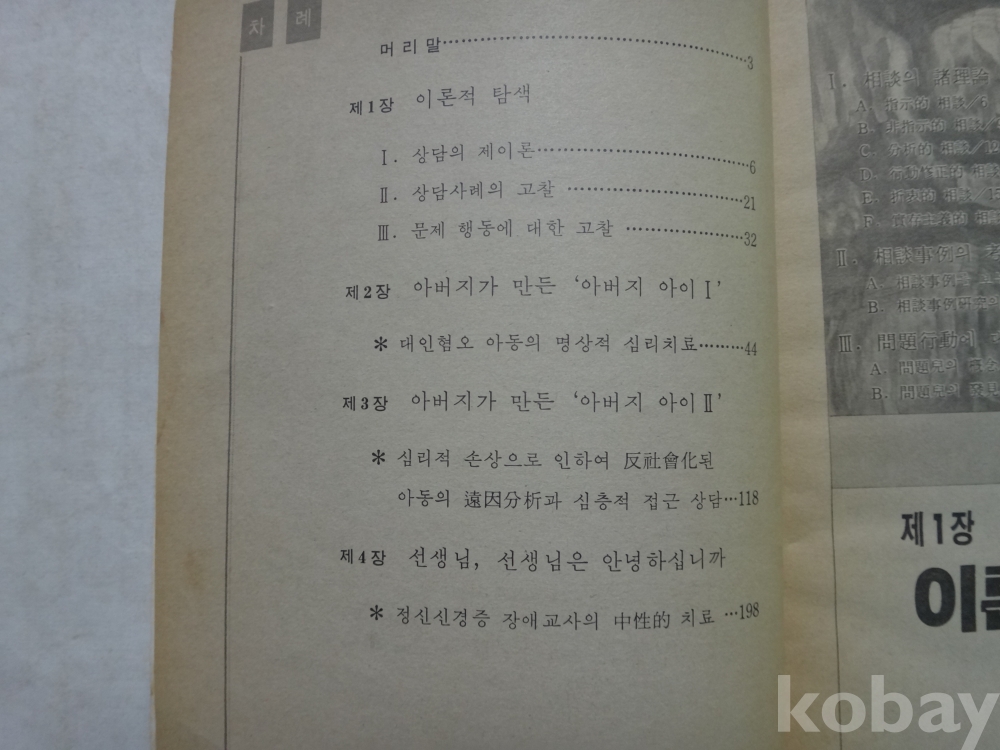 차 례
머리말 3
제1장 이론적 탐색
Ⅰ. 상담의 제이론 6
Ⅱ. 상담사례의 고찰 21
Ⅲ. 문제 행동에 대한 고찰 32
제2장 아버지가 만든 ‘아버지 아이Ⅰ’
* 대인혐오 아동의 명상적 심리치료 44
제3장 아버지가 만든 ‘아버지 아이Ⅱ’
* 심리적 손상으로 인하여 反社會化된
아동의 遠因分析과 심층적 접근 상담 118
제4장 선생님, 선생님은 안녕하십니까
* 정신신경증 장애교사의 中性的 치료 198
Ⅰ. 相談의 諸理論
A. 指示的 相談/6
B. 非指示的 相談/
C. 分析的 相談/12
D. 行動修正的 相談
E. 折衷的 相談/1
F. 實存主義的 相談
Ⅱ. 相談事例의
A. 相談事例
B. 相談事例研究의
Ⅲ. 問題行動에
A. 問題兒의
B. 問題兒의
제1장
이론
kobay